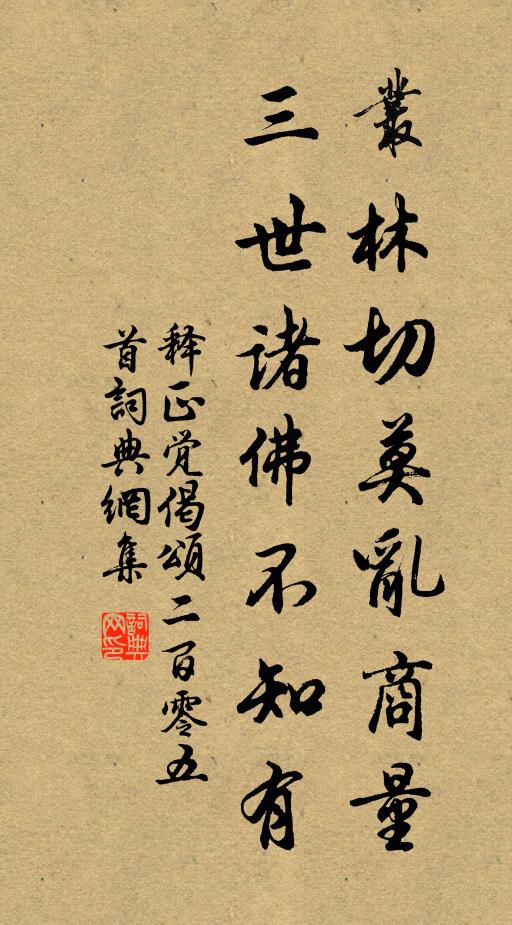 叢林切莫亂商量
三世诸佛不知有
释正觉偈頌二百零五
首詞典網集
詞典网印